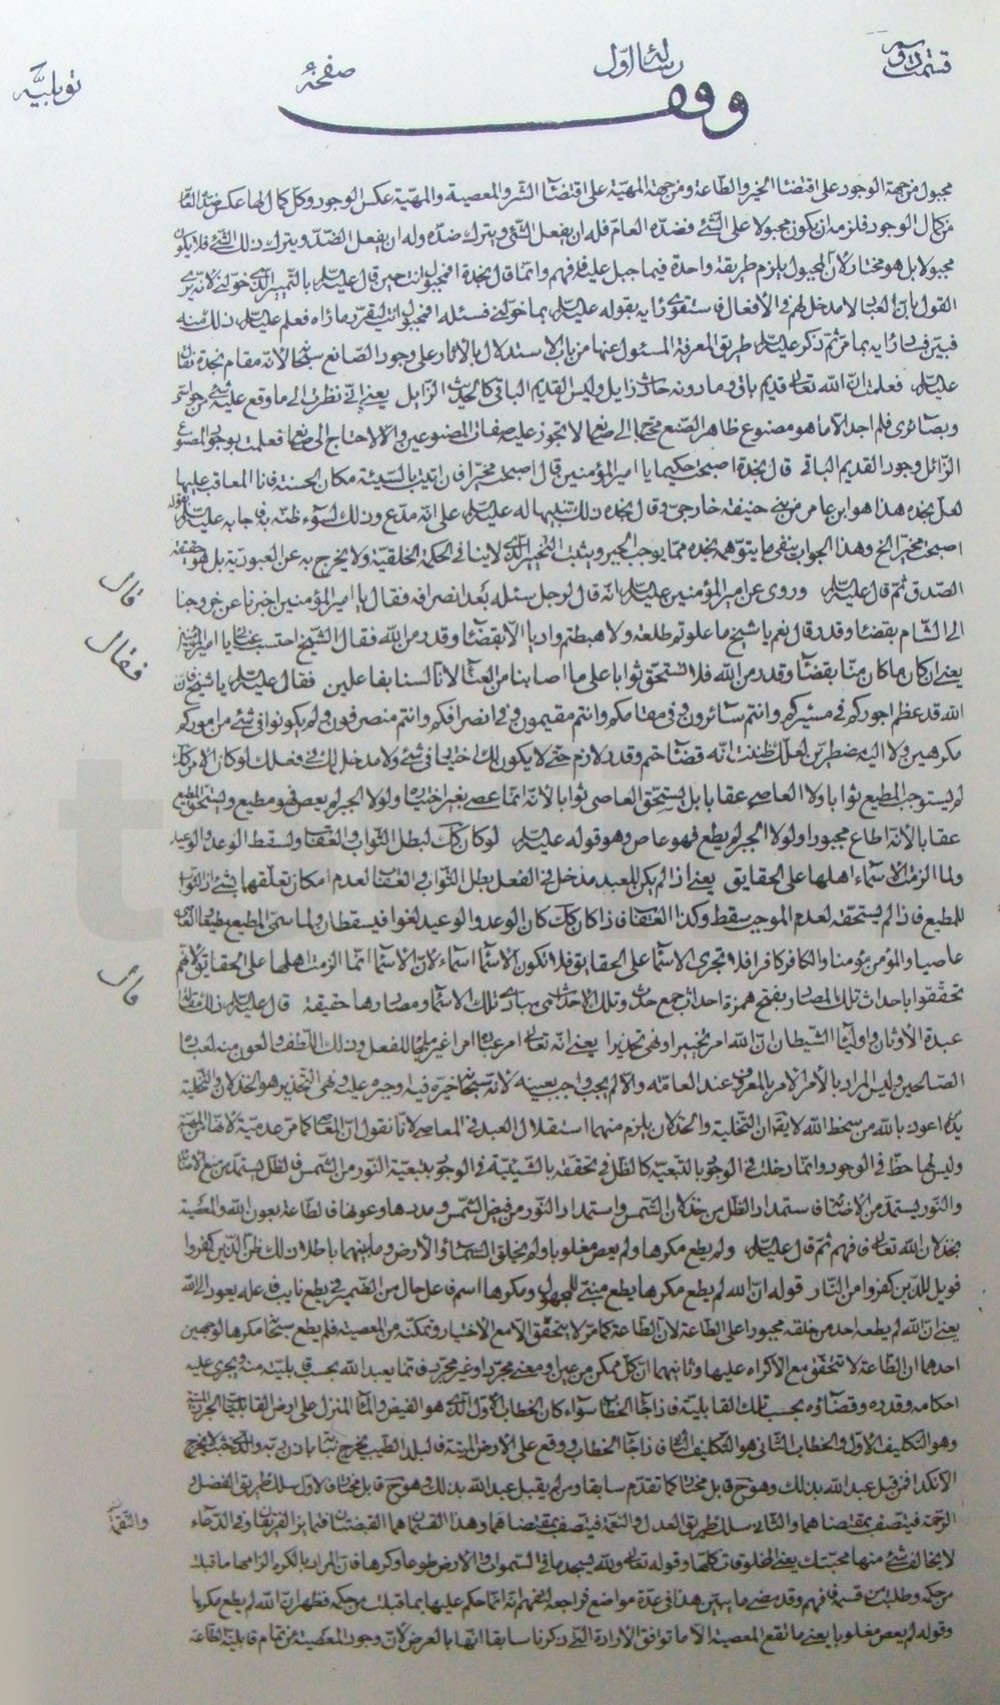 قسمت دوم رساله اول صفحه توبلیه
وقف
مجبول من جهة الوجود على اقتضاء الخير والطاعة ومن جهة المهيّة على اقتضاء الشر والمعصية والمهيّة عكس الوجود وكل كمال لها عكس
من كمال الوجود فلزمه ان يكون مجبولا على الشئ فضده العام فله ان يفعل الشئ ويترك ضده وله ان يفعل الضد ويترك ذلك الشئ فلا يكون
مجبولا بل هو مختار لان المجبول يلزم طريقة واحدة فيما جبل عليه فافهم وانما قال نجدة افمجبول انت حين قال عليه السلم بالتمييز الذى خوّلنى لانه يرى
القول بان العباد لا مدخل لهم فى الافعال فاستقوى رايه بقوله عليه السلم بما خوّلنى فسئله افمجبول انت ليقرر ما راه فعلم عليه السلم ذلك منه
فبيّن فساد رايه بما مر ثم ذكر عليه السلم طريق المعرفة المسئول عنها من باب الاستدلال بالاثار على وجود الصانع سبحانه لانه مقام نجدة فقال
عليه السلم فعلمت ان الله تعالى قديم باق وما دونه حادث زايل وليس القديم الباقى كالحدث الزايل يعنى انى نظرت الى ما وقع عليه شئ من حواسى
وبصائرى فلم اجد الا ما هو مصنوع ظاهر الصنع محتاجا الى صانع لا تجوز عليه صفات المصنوعين والا لاحتاج الى صانع فعلمت بوجود المصنوع
الزائل وجود القديم الباقى قال نجدة اصبحت حكيما يا امير المؤمنين قال اصبحت مخيّرا فان اتيت بالسيّئة مكان الحسنة فانا المعاقب عليها
لعل نجده هذا هو ابن عامر من بنى حنيفة خارجى وقال نجده ذلك تنبيها له عليه السلم على انه مدّع وذلك لسوء ظنه به فاجابه عليه السلم بقوله
اصبحت مخيّرا الخ وهذا الجواب ينفى ما يتوهمه نجده مما يوجب الجبر ويثبت التخيير الذى لا ينافى الحكمة الخلقية ولا يخرج به عن العبودية بل هو حقيقة
الصدق ثم قال عليه السلم وروى عن امير المؤمنين عليه السلم انه قال لرجل سئله بعد انصرافه فقال يا امير المؤمنين اخبرنا عن خروجنا
الى الشام بقضاء وقدر قال نعم يا شيخ ما علوتم طلعة ولا هبطتم واديا الا بقضاء وقدر من الله فقال الشيخ احتسب عنائى يا امير المؤمنين
يعنى ان كان ما كان منّا بقضاء وقدر من الله فلا نستحق ثوابا على ما اصابنا من العناء لانا لسنا بفاعلين فقال عليه السلم يا شيخ فان
الله قد عظم اجوركم فى مسيركم وانتم سائرون وفى مقامكم وانتم مقيمون وفى انصرافكم وانتم منصرفون ولم يكونوا فى شئ من اموركم
مكرهين ولا اليه مضطرين لعلك ظننت انه قضاء حتم وقدر لازم حتى لا يكون لك اختيار فى شئ ولا مدخل لك فى فعلك لو كان الامر كذلك
لم يستوجب المطيع ثوابا ولا العاصى عقابا بل يستحق العاصى ثوابا لانه انما عصى بغير اختياره ولولا الجبر لم يعص فهو مطيع ويستحق المطيع
عقابا لانه اطاع مجبورا ولولا الجبر لم يطع فهو عاص وهو قوله عليه السلم لو كان كذلك لبطل الثواب والعقاب ولسقط الوعد والوعيد
ولما الزمت الاسماء اهلها على الحقايق يعنى اذا لم يكن للعبد مدخل فى الفعل بطل الثواب والعقاب لعدم امكان تعلقهما بشئ
للمطيع فاذا لم يستحقه لعدم الموجب سقط وكذا العقاب فاذا كان كذلك كان الوعد والوعيد لغوا فيسقطان ولما سمى المطيع مطيعا والعاصى
عاصيا والمؤمن مؤمنا والكافر كافرا فلا تجرى الاسماء على الحقايق فلا تكون الاسماء اسماء لان الاسماء انما الزمت اهلها على الحقايق لانهم
تحققوا باحداث تلك المصادر بفتح همزة احداث جمع حدث وتلك الاحداث مبادى تلك الاسماء ومصادرها حقيقة قال عليه السلم ذلك مقالة
عبدة الاوثان واولياء الشيطان ان الله امر تخييرا ونهى تحذيرا يعنى انه تعالى امر عباده امرا غير ملجئ للفعل وذلك اللطف والعون منه لعباده
الصالحين وليس المراد بالامر الامر بالمعروف عند العامة والا لم يجب واجب بعينه لانه سبحانه خيّره فيه اوجبره عليه ونهى التحذير هو الخذلان والتخلية
يده اعوذ بالله من سخط الله لا يقال ان التخلية والخذلان يلزم منهما استقلال العبد فى المعاصى لانا نقول ان المعاصى كما مر عدمية لانها من المهية
وليس لها حظ فى الوجود وانما دخلت فى الوجود بالتبعية كالظل فى تحققه بالشيئية فى الوجود بتبعية النور من الشمس فالظل يستمد من
والنور يستمد من الاضاءة فاستمداد الظل من خذلان الشمس واستمداد النور من فيض الشمس ومددها وعونها فالطاعة بعون الله والمعصية
بخذلان الله تعالى فافهم ثم قال عليه السلم ولم يطع مكرها ولم يعص مغلوبا ولم يخلق السماء والارض وما بينهما باطلا ذلك ظن الذين كفروا
فويل للذين كفروا من النار قوله ان الله لم يطع مكرها يطع مبنى للمجهول ومكرها اسم فاعل حال من الضمير فى يطع نايب فاعله يعود الى الله
يعنى ان الله لم يطعه احد من خلقه مجبورا على الطاعة لان الطاعة كما مر لا تتحقق الا مع الاختيار وتمكنه من المعصية فلم يطع سبحانه مكرها لوجهين
احدهما ان الطاعة لا تتحقق مع الاكراه عليها وثانيهما ان كل ممكن من عين او معنى مجرد او غير مجرد فانما يعبد الله بحسب قابليته منه ويجرى عليه
احكامه وقدره وقضاؤه بحسب تلك القابلية فاذا جاء الخطاب سواء كان الخطاب الاول الذى هو الفيض والماء المنزل على ارض القابليات الجرز
وهو التكليف الاول والخطاب الثانى هو التكليف الثانى فاذا جاء الخطاب ووقع على الارض الميتة فالبلد الطيب يخرج نباته باذن ربه والذى خبث لا يخرج
الا نكدا فمن قبل عبد الله بذلك وهو ح قابل مختار كما تقدم سابقا ومن لم يقبل عبد الله بذلك وهو ح قابل مختار فالاول سلك طريق الفضل و
الرحمة فيتصف بمقتضاهما والثانى سلك طريق العدل والنقمة فيتصف بمقتضاهما وهذا القسمان هما القبضتان فتمايز الفريقان وفى الدعاء
لا يخالف شئ منها محبتك يعنى المخلوقات كلها وقوله تعالى ولله يسجد ما فى السموات والارض طوعا وكرها فان المراد بالكره الزامها ما قبلت
من حكمه وطلبت من قسمه فافهم وقد مضى ما يبين هذا فى عدة مواضع فراجعه انه انما حكم عليها بما قبلت من حكمه فظهر ان الله لم يطع مكرها
وقوله لم يعص مغلوبا يعنى ما تقع المعصية الا ما توافق الارادة التى ذكرنا سابقا انها بالعرض لان وجود المعصية من تمام قابلية الطاعة
قال
فقال
قال
والنقمة